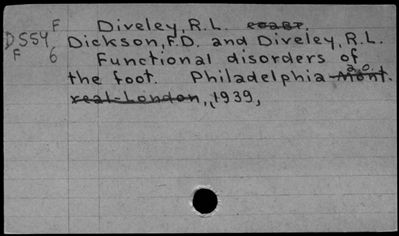 F Diveley, R.L. coabr.
D554, Dickson, F.D. and Diveley, R.L.
F 6 Functional disorders of
the foot. Philadelphia Mont.
real-London, 1939,